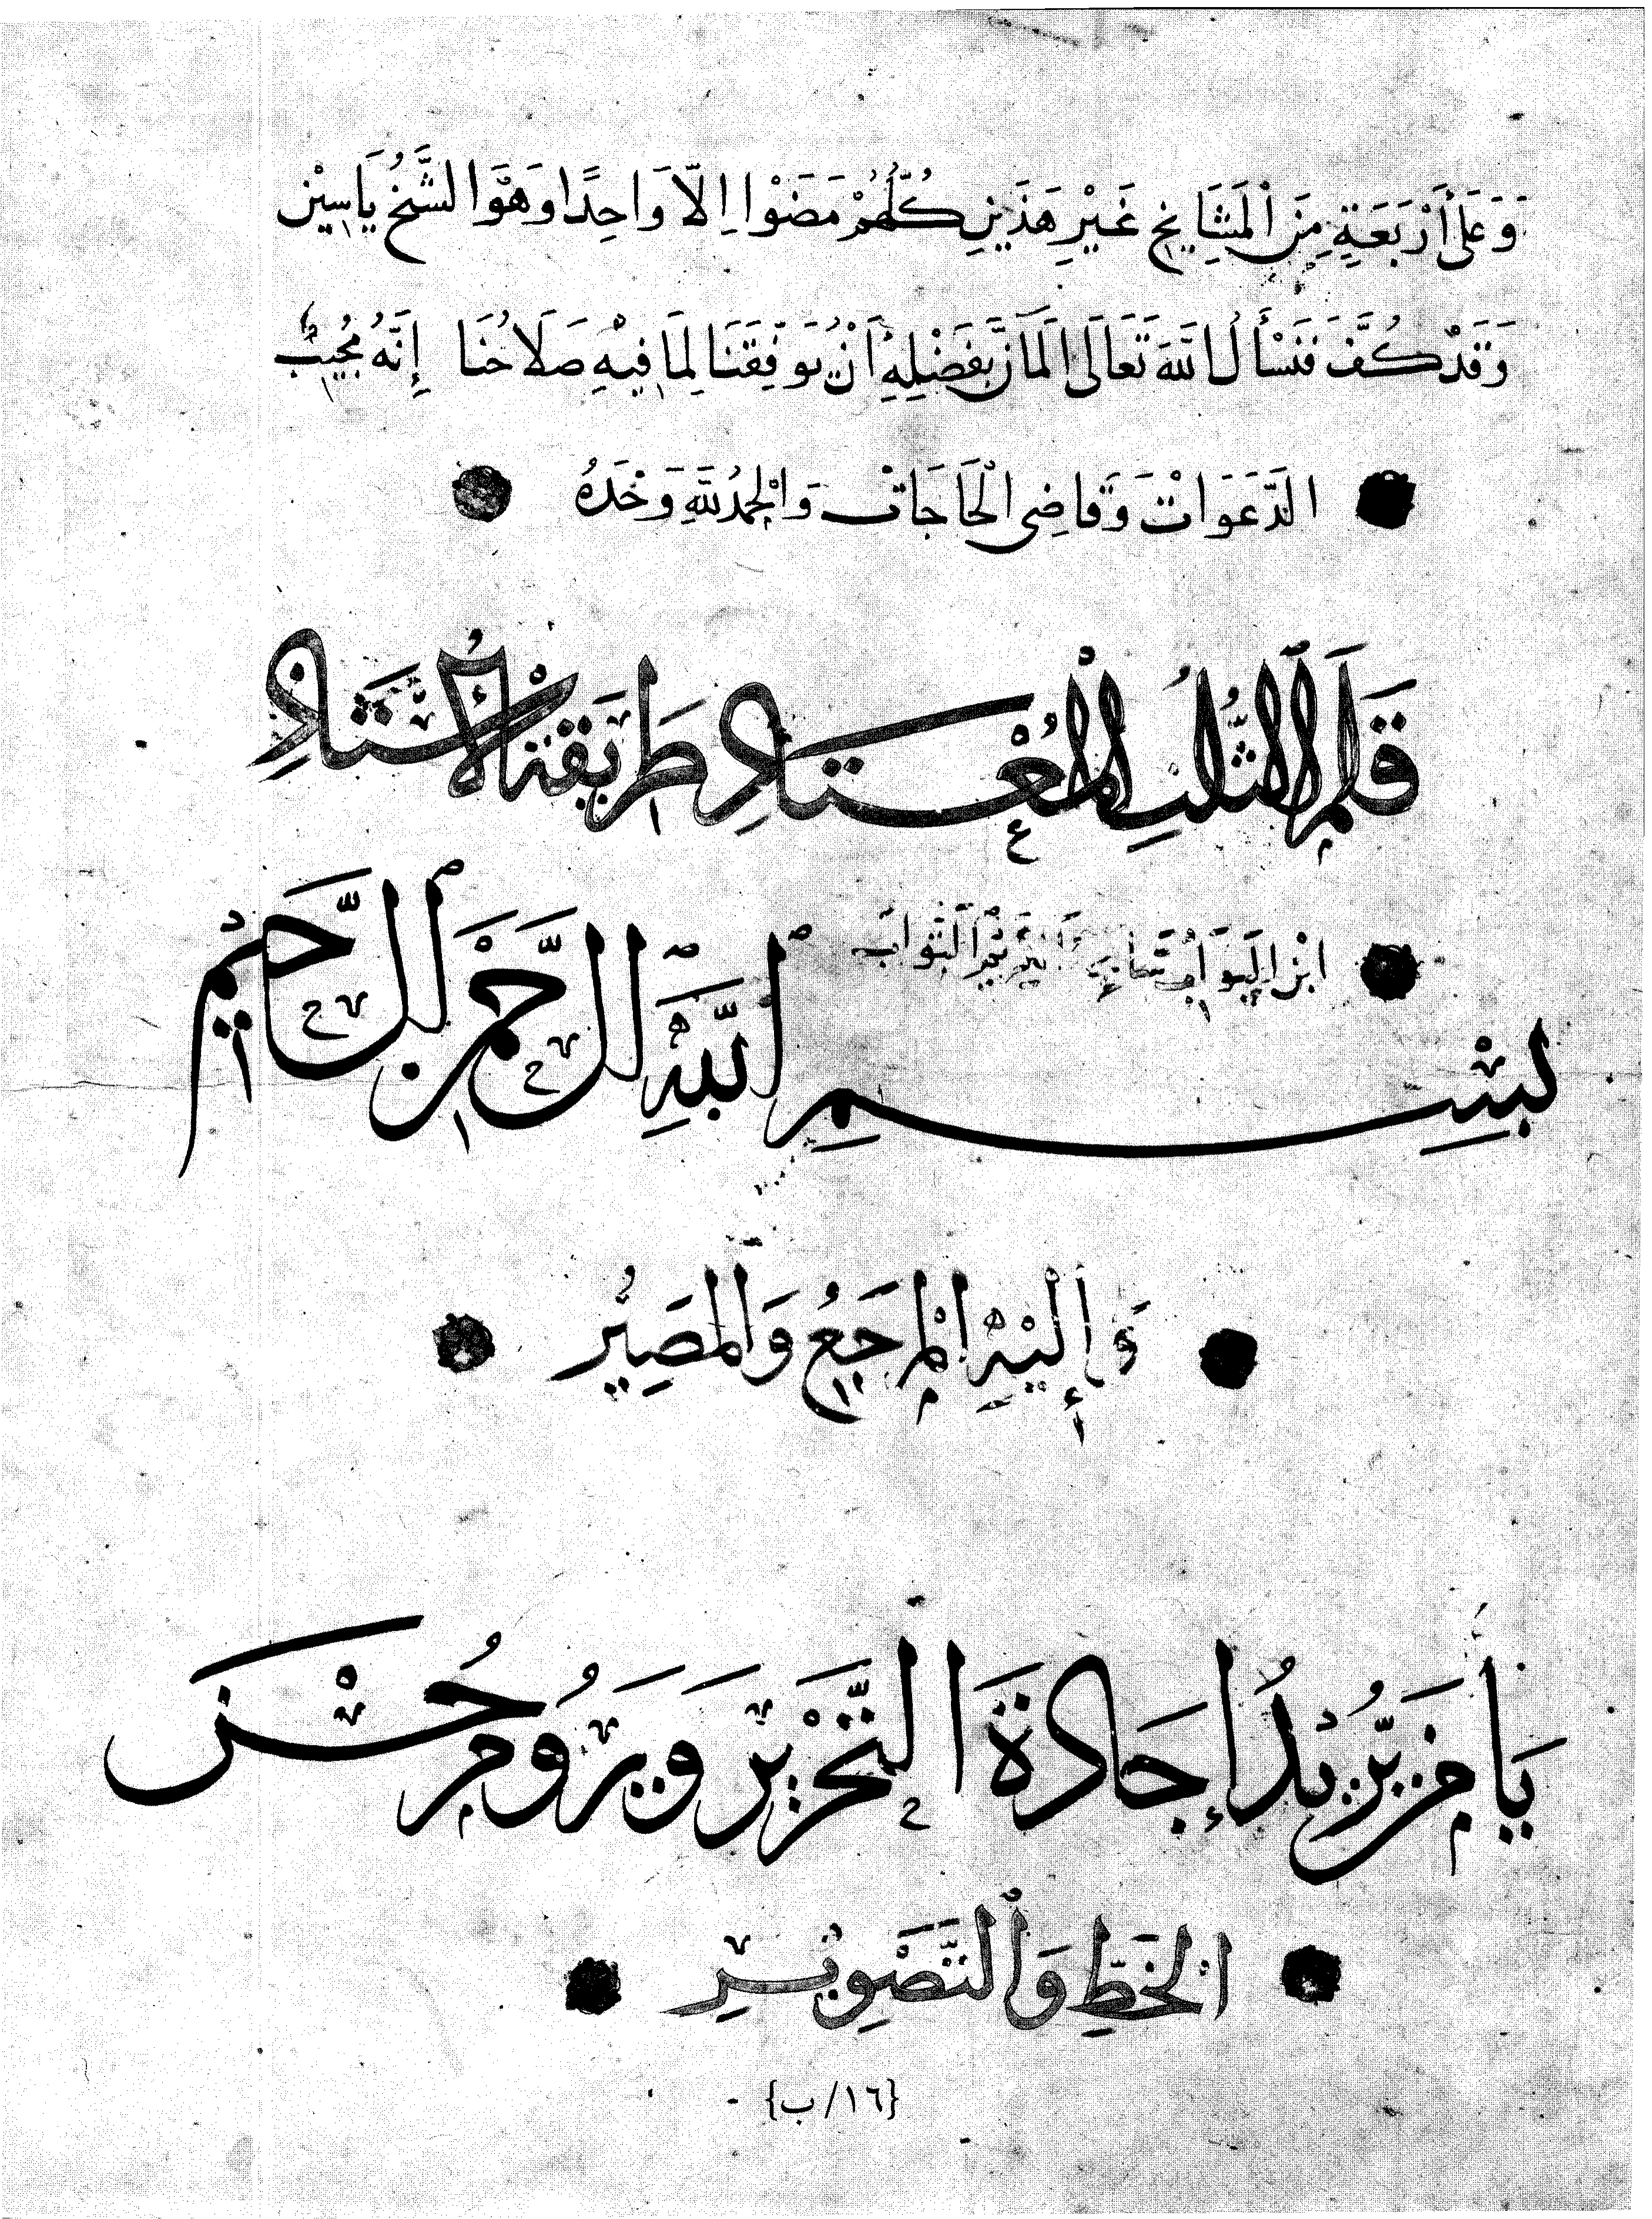 وَعَلَى أَرْبَعَةٍ مِنَ الْمَشَايِخِ غَيْرِ هَذَيْنِ كُلُّهُمْ مَضَوْا إِلَّا وَاحِدًا وَهُوَ الشَّيْخُ يَاسِيْن
وَقَدْ كُفَّ فَنَسْأَلُ اللهَ تَعَالَى الْمَانَّ بِفَضْلِهِ أَنْ يُوَفِّقَنَا لِمَا فِيْهِ صَلَاحُنَا إِنَّهُ مُجِيْبُ
الدَّعَوَاتْ وَقَاضِى الْحَاجَاتْ وَالْحَمْدُ لِلَّهِ وَحْدَهُ
قَلَمُ الثُّلُثِ الْمُعْتَادِ طَرِيقَةُ الْأُسْتَاذِ
ابْنِ الْبَوَّابِ
بِسْمِ اللَّهِ الرَّحْمَنِ الرَّحِيْمِ
وَإِلَيْهِ الْمَرْجَعُ وَالْمَصِيْرُ
يَا مَنْ يُّرِيْدُ إِجَادَةَ التَّحْرِيْرِ وَيَرُوْمُ حُسْنَ
الْخَطِّ وَالتَّصْوِيْرِ
{١٦/ب}